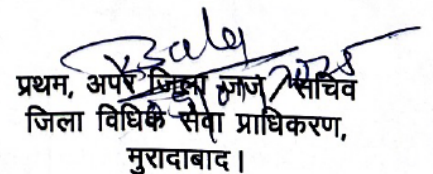 प्रथम, अपर जिला जज / सचिव
जिला विधिक सेवा प्राधिकरण,
मुरादाबाद।